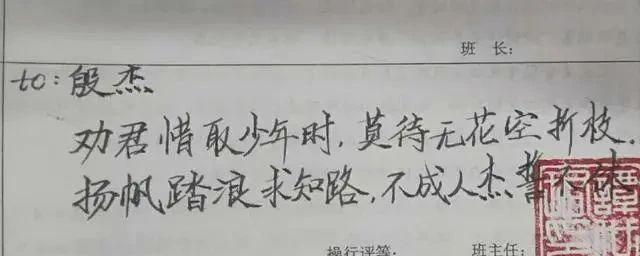 班 长:
to: 殷杰
劝君惜取少年时,莫待无花空折枝.
扬帆踏浪求知路,不成人杰誓不休
操行评等:
班主任: